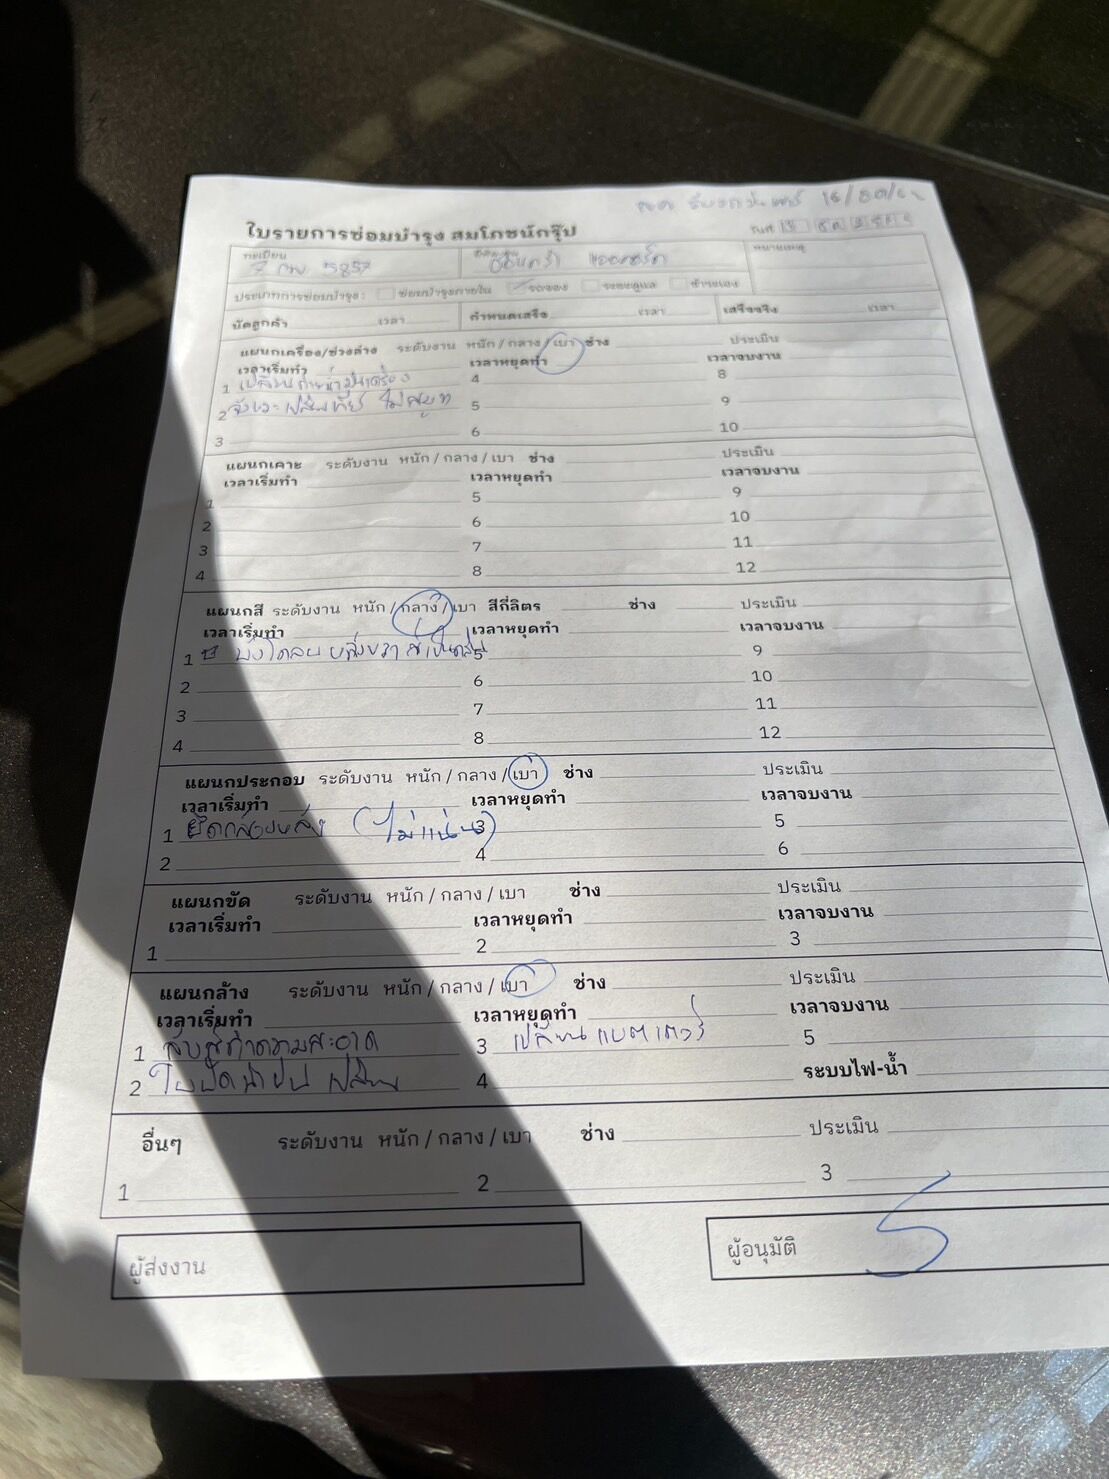 16/
ใบรายการซ่อมบำรุง สมโภชน์กรุ๊ป วันที่
ทะเบียน หมายเหตุ
5857
ประเภทการซ่อมบำรุง : ซ่อมบำรุงภายใน รถจอง ระยะดูแล ชำระเอง
นัดลูกค้า เวลา กำหนดเสร็จ เวลา เสร็จจริง เวลา
แผนกเครื่อง/ช่วงล่าง ระดับงาน หนัก / กลาง / เบา ช่าง ประเมิน
เวลาเริ่มทำ เวลาหยุดทำ เวลาจบงาน
1 เปลี่ยนถ่ายน้ำมันเครื่อง 4 8
2 จังหวะเปลี่ยนเกียร์ ไม่สมูท 5 9
3 6 10
แผนกเคาะ ระดับงาน หนัก / กลาง / เบา ช่าง ประเมิน
เวลาเริ่มทำ เวลาหยุดทำ เวลาจบงาน
1 5 9
2 6 10
3 7 11
4 8 12
แผนกสี ระดับงาน หนัก / กลาง / เบา สีกี่ลิตร ช่าง ประเมิน
เวลาเริ่มทำ เวลาหยุดทำ เวลาจบงาน
1 บังโคลน 5 9
2 6 10
3 7 11
4 8 12
แผนกประกอบ ระดับงาน หนัก / กลาง / เบา ช่าง ประเมิน
เวลาเริ่มทำ เวลาหยุดทำ เวลาจบงาน
1 (ไม่แน่น) 3 5
2 4 6
แผนกขัด ระดับงาน หนัก / กลาง / เบา ช่าง ประเมิน
เวลาเริ่มทำ เวลาหยุดทำ เวลาจบงาน
1 2 3
แผนกล้าง ระดับงาน หนัก / กลาง / เบา ช่าง ประเมิน
เวลาเริ่มทำ เวลาหยุดทำ เวลาจบงาน
1 ทำความสะอาด 3 เปลี่ยนแบตเตอรี่ 5
2 ใบปัดน้ำฝน เปลี่ยน 4 ระบบไฟ-น้ำ
อื่นๆ ระดับงาน หนัก / กลาง / เบา ช่าง ประเมิน
1 2 3
ผู้ส่งงาน ผู้อนุมัติ